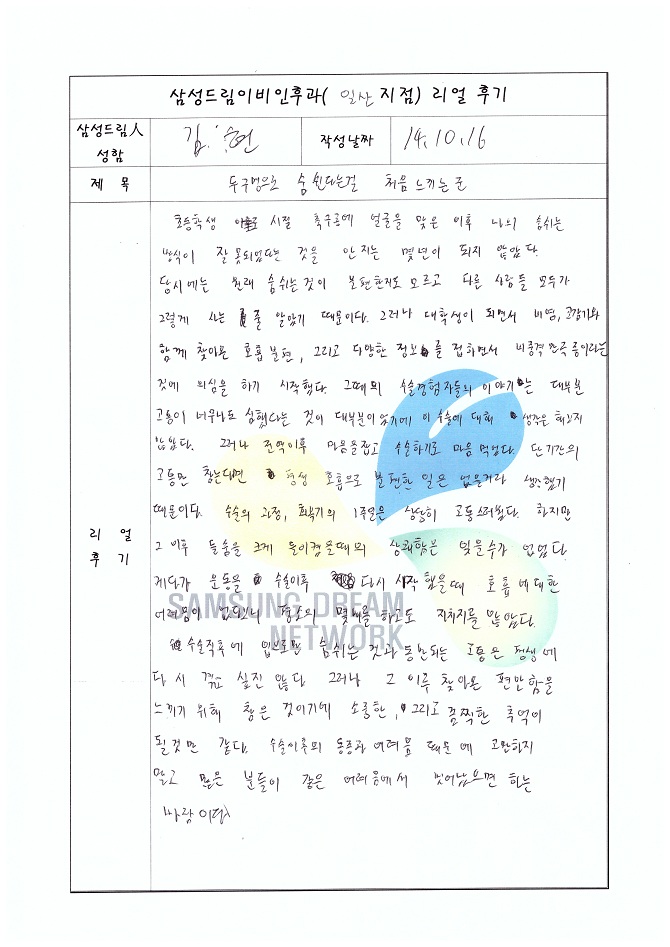 삼성드림이비인후과( 일산 지점) 리얼 후기
삼성드림人 성함
김 현
작성날짜
14.10.16
제 목
두구멍으로 숨 쉰다는걸 처음 느끼는 준
리 얼 후 기
초등학생 시절 축구공에 얼굴을 맞은 이후 나의 숨쉬는
방식이 잘 못되었다는 것을 안지는 몇년이 되지 않았다.
당시에는 원래 숨쉬는것이 불편한지도 모르고 다른 사람들 모두가
그렇게 사는 줄 알았기 때문이다. 그러나 대학생이 되면서 비염, 코감기와
함께 찾아온 호흡불편, 그리고 다양한 정보를 접하면서 비중격만곡증이라는
것에 의심을 하기 시작했다. 그때의 수술경험자들의 이야기는 대부분
고통이 너무나도 심했다는 것이 대부분이었기에 이 수술에 대해 생각을 하지
않았다. 그러나 전역이후 마음을잡고 수술하기로 마음 먹었다. 단기간의
고통만 참는다면 평생 호흡으로 불편한 일은 없을거라 생각했기
때문이다. 수술의 과정, 회복기의 1주일은 상당히 고통스러웠다. 하지만
그 이후 들숨을 크게 들이켰을때의 상쾌함은 잊을수가 없었다.
게다가 운동을 수술이후 다시 시작했을때 호흡에 대한
어려움이 없다보니 평소의 몇배를 하고도 지치지를 않았다.
수술직후에 입으로만 숨쉬는 것과 동반되는 고통은 평생에
다시 겪고 싶진 않다. 그러나 그 이후 찾아온 편안함을
느끼기 위해 참은 것이기에 소중한, 그리고 끔찍한 추억이
될것만 같다. 수술이후의 통증과 어려움 때문에 고민하지
말고 많은 분들이 같은 어려움에서 벗어났으면 하는
바람이다
SAMSUNG DREAM
NETWORK